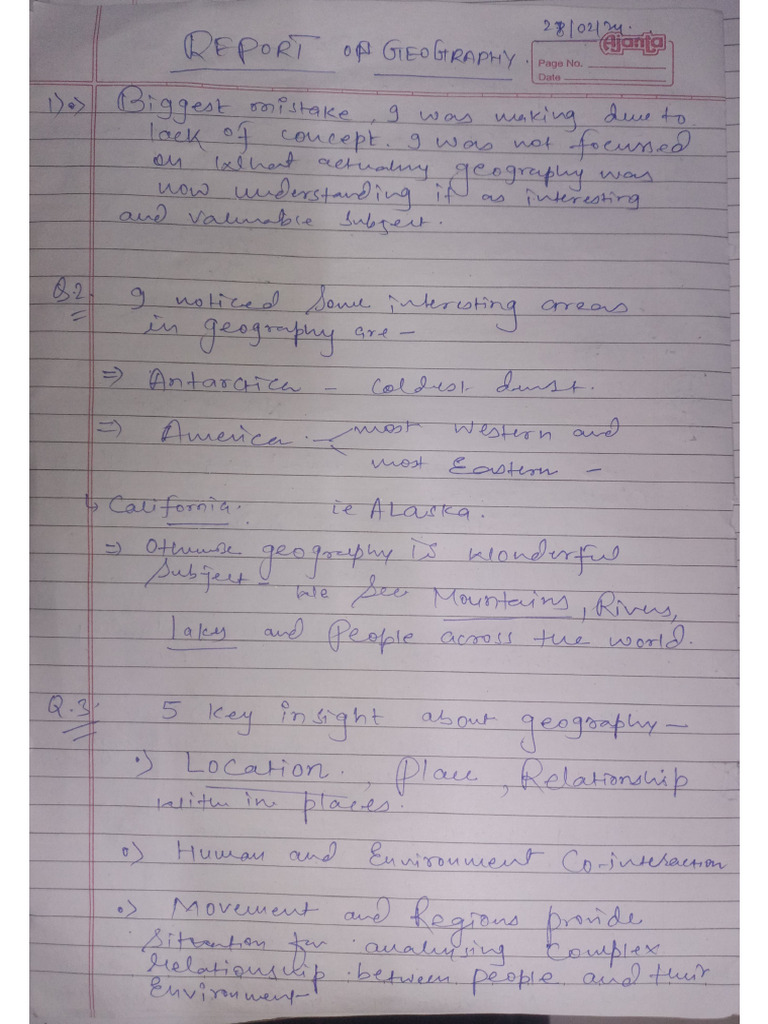 28/02/24.
REPORT OF GEOGRAPHY.
Ajanta
Page No.
Date
1) •) Biggest mistake, I was making due to
lack of concept. I was not focussed
on what actually geography was
now understanding it as interesting
and valuable subject.
Q.2. I noticed some interesting areas
in geography are -
⇒ Antarctica - coldest
⇒ America. most western and
most Eastern -
↳ California. ie ALaska.
⇒ Otherwise geography is wonderful
subject - we see Mountains, Rivers,
lakes and People across the world.
Q.3. 5 key insight about geography -
•) Location, Place, Relationship
with in places.
•) Human and Environment Co-interaction
•) Movement and Regions provide
situation for analysing complex
relationship between people and their
Environment